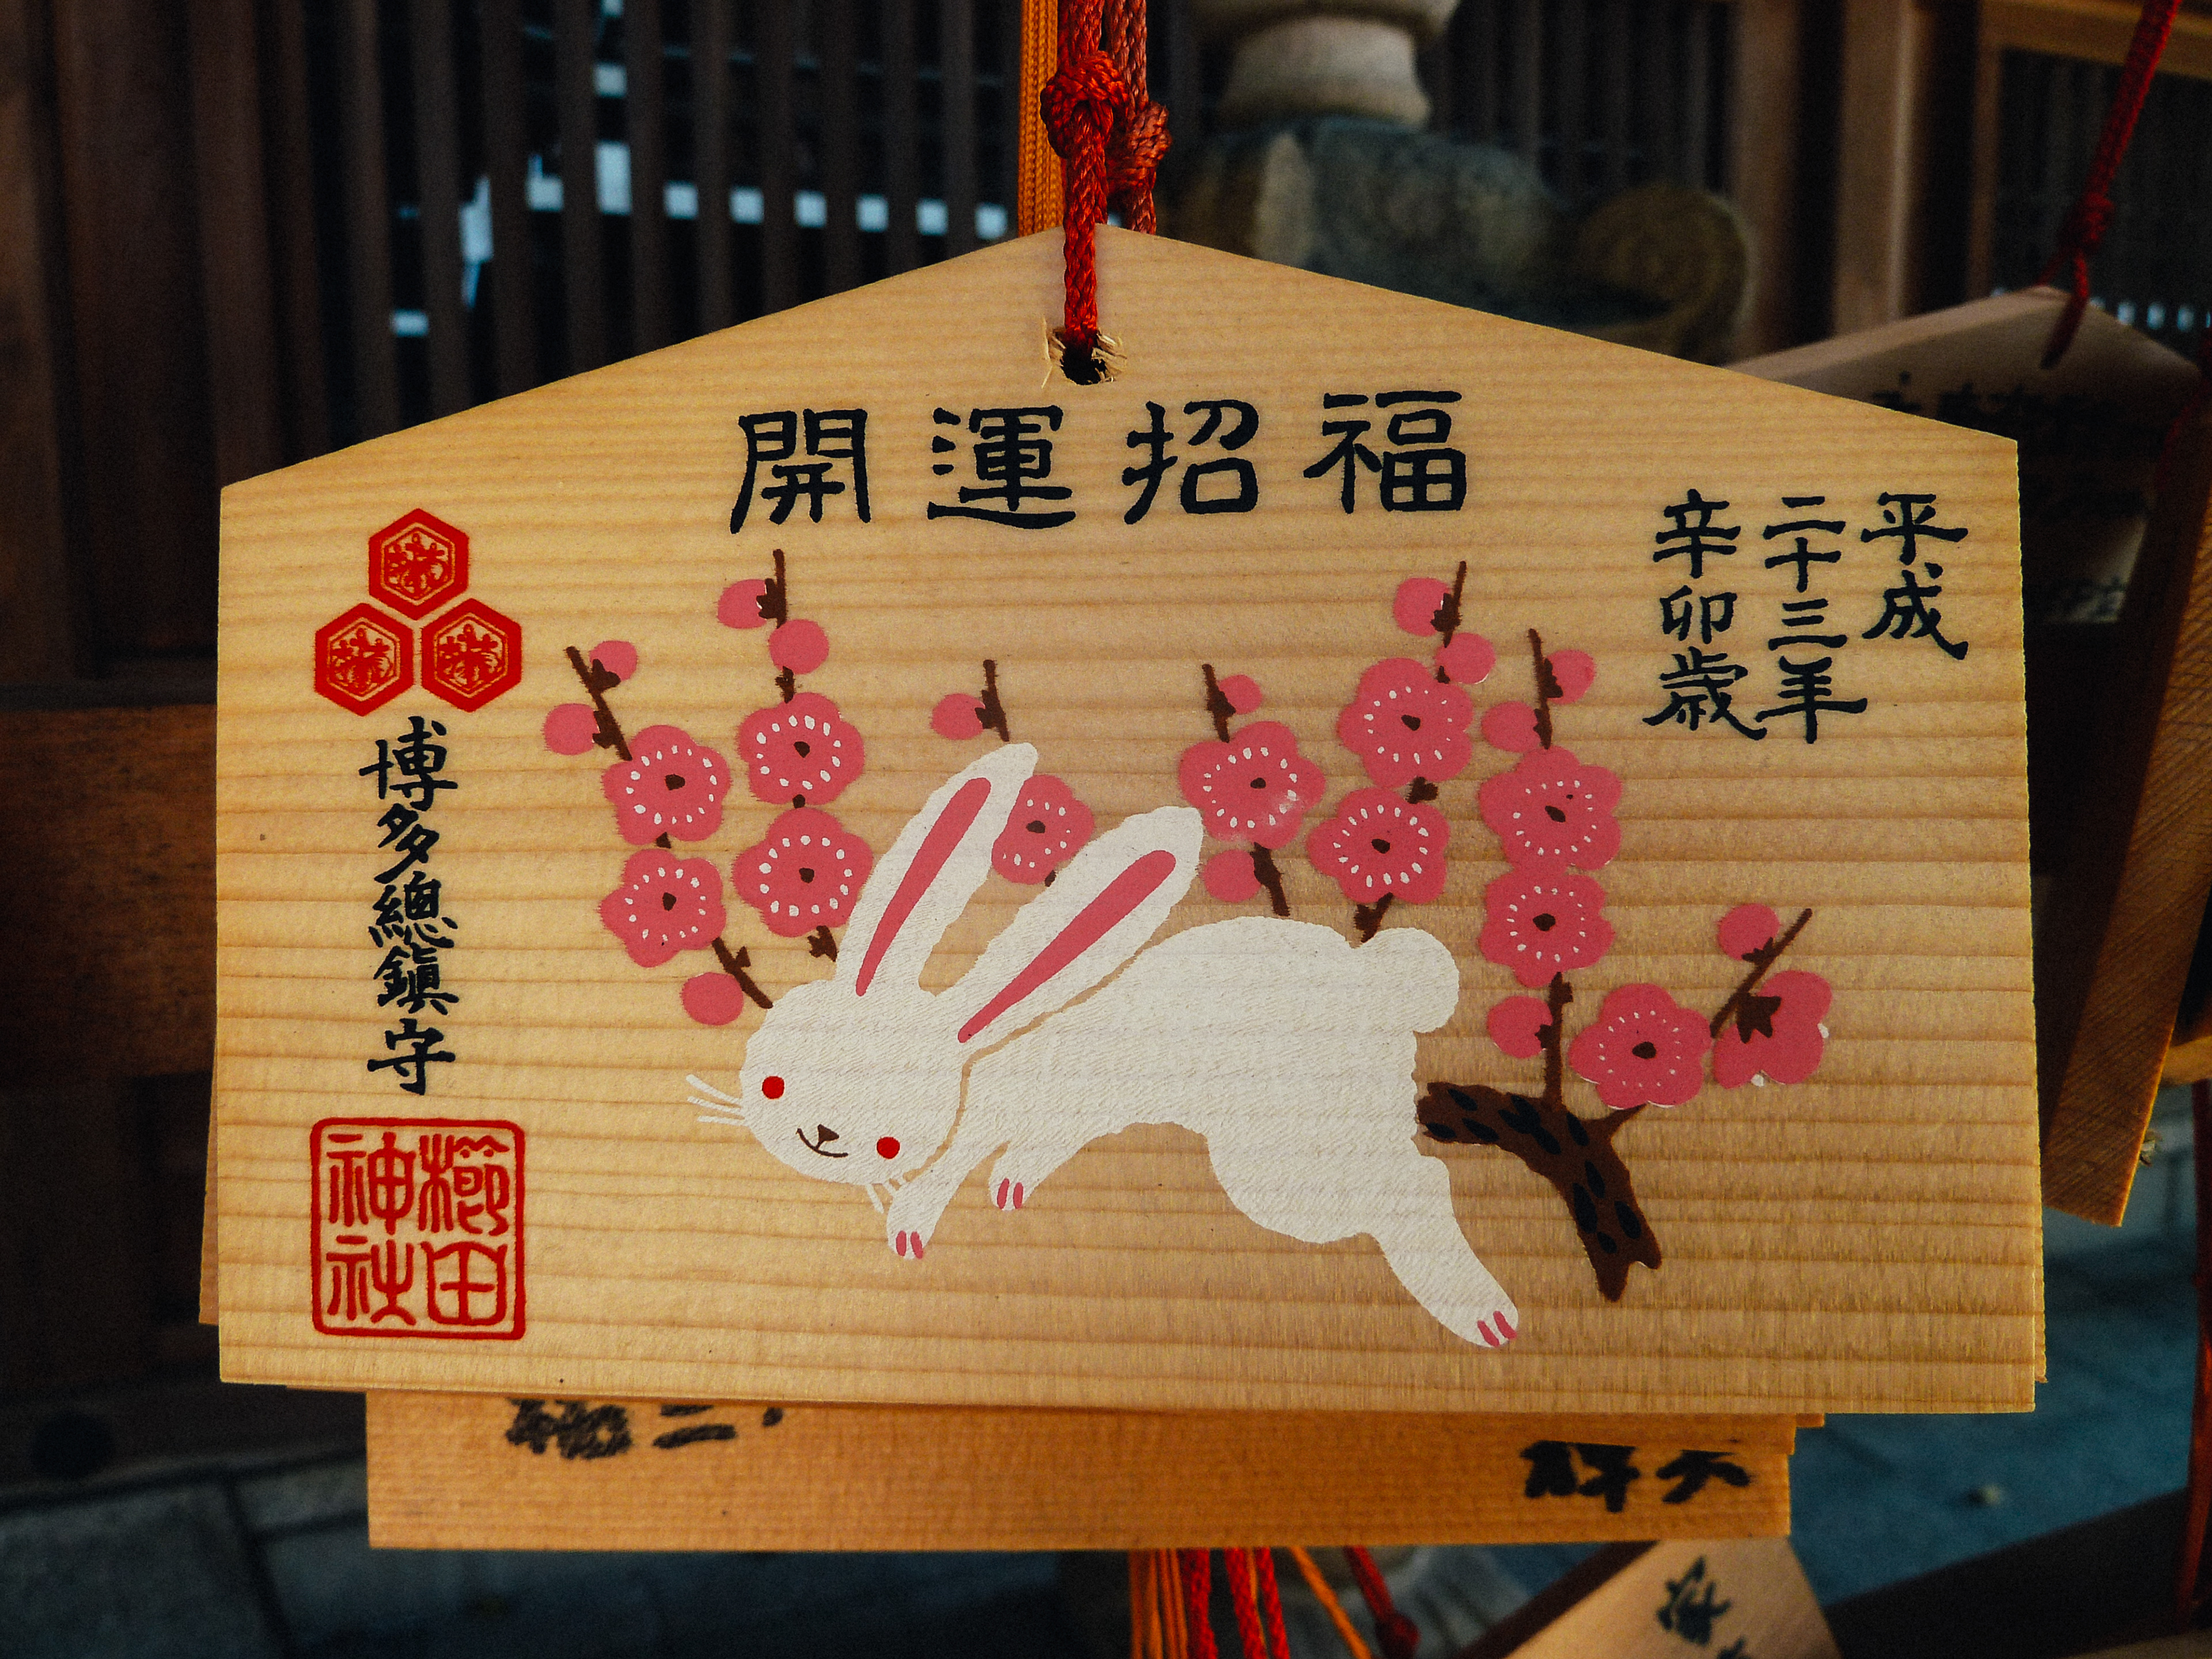 開運招福
平成
二十三年
辛卯歳
博多總鎮守
櫛田
神社